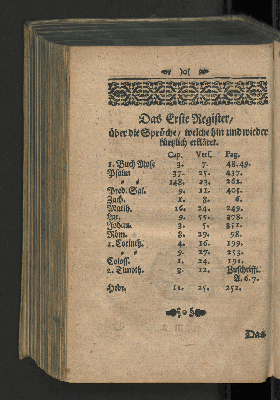 Das Erste Register/
über die Sprüche/ welche hin und wieder
kürtzlich erkläret.
Cap. Vers. Pag.
1. Buch Mose 3. 7. 48. 49.
Psalm 37. 25. 437.
148. 23. 261.
Pred. Sal. 9. 11. 405.
Zach. 1. 8. 6.
Matth. 16. 24. 249.
Luc. 9. 55. 378.
Johan. 3. 5. 351.
Röm. 8. 29. 98.
1. Corinth. 4. 16. 199.
9. 27. 253.
Coloss. 1. 24. 191.
2. Timoth. 3. 12. Zuschrifft.
A. 6. 7.
Hebr. 11. 25. 252.
Das